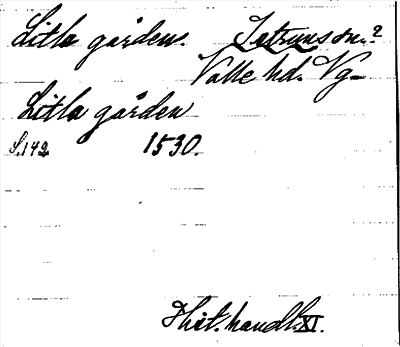 Litla gården. Istrums sn.?
Valle hd. Vg-
Litla gården
S.142 1530.
Hist. handl. XI.